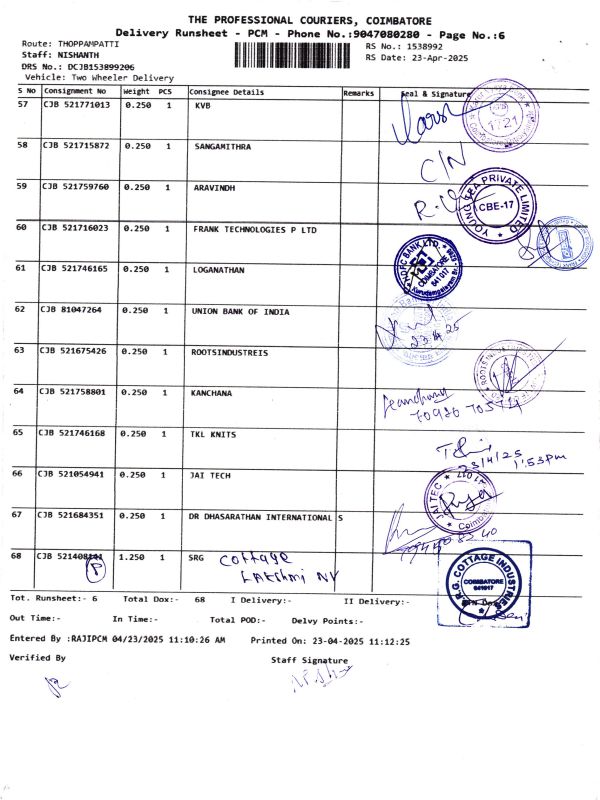 THE PROFESSIONAL COURIERS, COIMBATORE
Delivery Runsheet - PCM - Phone No.:9047080280 - Page No.:6
Route: THOPPAMPATTI
RS No.: 1538992
Staff: NISHANTH
RS Date: 23-Apr-2025
DRS No.: DCJB153899206
Vehicle: Two Wheeler Delivery
S No Consignment No Weight PCS Consignee Details Remarks Seal & Signature
57 CJB 521771013 0.250 1 KVB
1721
58 CJB 521715872 0.250 1 SANGAMITHRA
C/N
59 CJB 521759760 0.250 1 ARAVINDH
YOUNG ERA PRIVATE LIMITED
CBE-17
60 CJB 521716023 0.250 1 FRANK TECHNOLOGIES P LTD
61 CJB 521746165 0.250 1 LOGANATHAN
HDFC BANK LTD.
COIMBATORE
641 017
62 CJB 81047264 0.250 1 UNION BANK OF INDIA
63 CJB 521675426 0.250 1 ROOTSINDUSTREIS
64 CJB 521758801 0.250 1 KANCHANA
65 CJB 521746168 0.250 1 TKL KNITS
23/4/25
1:53pm
66 CJB 521054941 0.250 1 JAI TECH
JAI TEC
67 CJB 521684351 0.250 1 DR DHASARATHAN INTERNATIONAL S
68 CJB 1.250 1 SRG Cottage
P
Lakshmi NV
R.G. COTTAGE INDUSTRIES
COIMBATORE
641017
Tot. Runsheet:- 6 Total Dox:- 68 I Delivery:- II Delivery:-
Out Time:- In Time:- Total POD:- Delvy Points:-
Entered By :RAJIPCM 04/23/2025 11:10:26 AM Printed On: 23-04-2025 11:12:25
Verified By Staff Signature